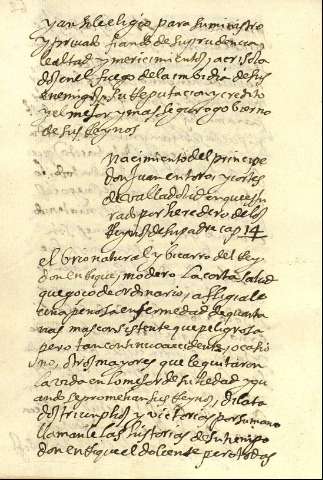 y ansi le eligio para su ministro
y privado fiando de su prudencia
lealtad y merecimientos, acrisola
dos en el fuego de la imbidia de sus
enemigos, su Reputacion y credito
y el mejor y mas seguro govierno
de sus Reynos
Nacimiento del principe
don Juan en toro, y cortes
de valladolid en que es ju
rado por heredero de los
Reynos de su padre cap 14
el brio natural y bicarro del Rey
don enrique, modero la corta salud
que goço de ordinario, afligiale
una penosa enfermedad de quarta
nas mas consistente que peligrosa
pero tan continuo accidente, ocasio
no, otros mayores que le quitaron
la vida en lo mejor de su hedad y qu
ando se prometian sus Reynos, dilata
dos triumphos y victorias por su mano
llamanle las historias de su tiempo
don enrique el doliente pero todas